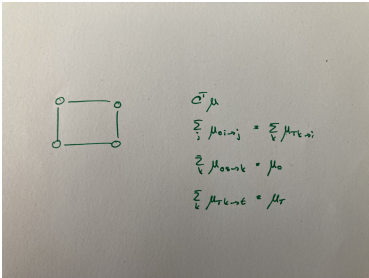 CᵀΜ
Σⱼ μ₀ᵢ→ⱼ = Σₖ μTₖ→ᵢ
Σₖ μ₀ₛ→ₖ = μ₀
Σₖ μTₖ→ₜ = μT